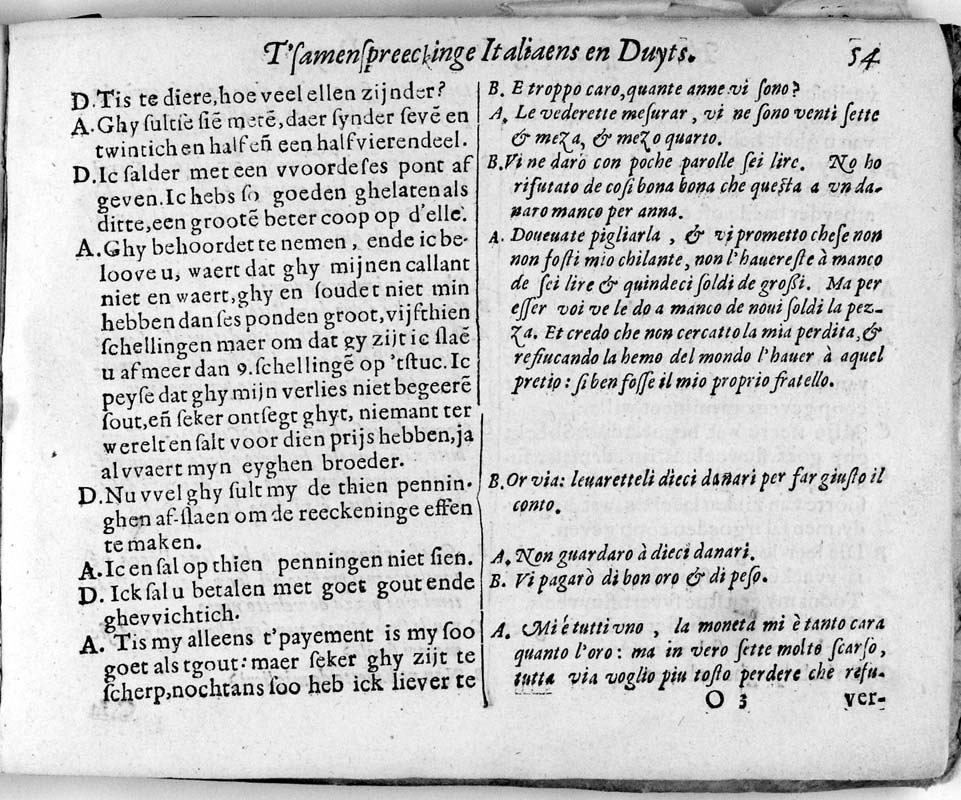 T'samenspreeckinge Italiaens en Duyts.
54
D. Tis te diere, hoe veel ellen zijnder?
A. Ghy sultse siē metē, daer synder sevē en
twintich en half eñ een half vierendeel.
D. Ic salder met een vvoorde ses pont af
geven. Ic hebs so goeden ghelaten als
ditte, een grootē beter coop op d'elle.
A. Ghy behoordet te nemen, ende ic be-
loove u, waert dat ghy mijnen callant
niet en waert, ghy en soudet niet min
hebben dan ses ponden groot, vijfthien
schellingen maer om dat gy zijt ic slaē
u af meer dan 9. schellingē op 'tstuc. Ic
peyse dat ghy mijn verlies niet begeerē
sout, eñ seker ontsegt ghyt, niemant ter
werelt en salt voor dien prijs hebben, ja
al vvaert myn eyghen broeder.
D. Nu vvel ghy sult my de thien pennin-
ghen af-slaen om de reeckeninge effen
te maken.
A. Ic en sal op thien penningen niet sien.
D. Ick sal u betalen met goet gout ende
ghevvichtich.
A. 'Tis my alleens t'payement is my soo
goet als tgout: maer seker ghy zijt te
scherp, nochtans soo heb ick liever te
B. E troppo caro, quante anne vi sono?
A. Le vederette mesurar, vi ne sono venti sette
& meza, & mezo quarto.
B. Vi ne darò con poche parolle sei lire. No ho
rifutato de cosi bona bona che questa a vn da-
naro manco per anna.
A. Doueuate pigliarla, & vi prometto che se non
non fosti mio chilante, non l'hauereste à manco
de sei lire & quindeci soldi de grossi. Ma per
esser voi ve le do a manco de noui soldi la pez-
za. Et credo che non cercatto la mia perdita, &
refiucando la hemo del mondo l'hauer à aquel
pretio: si ben fosse il mio proprio fratello.
B. Or via: leuaretteli dieci danari per far giusto il
conto.
A. Non guardaro à dieci danari.
B. Vi pagarò di bon oro & di peso.
A. Mi é tutti vno, la moneta mi è tanto cara
quanto l'oro: ma in vero sette molto scarso,
tutta via voglio piu tosto perdere che refu-
O 3
ver-